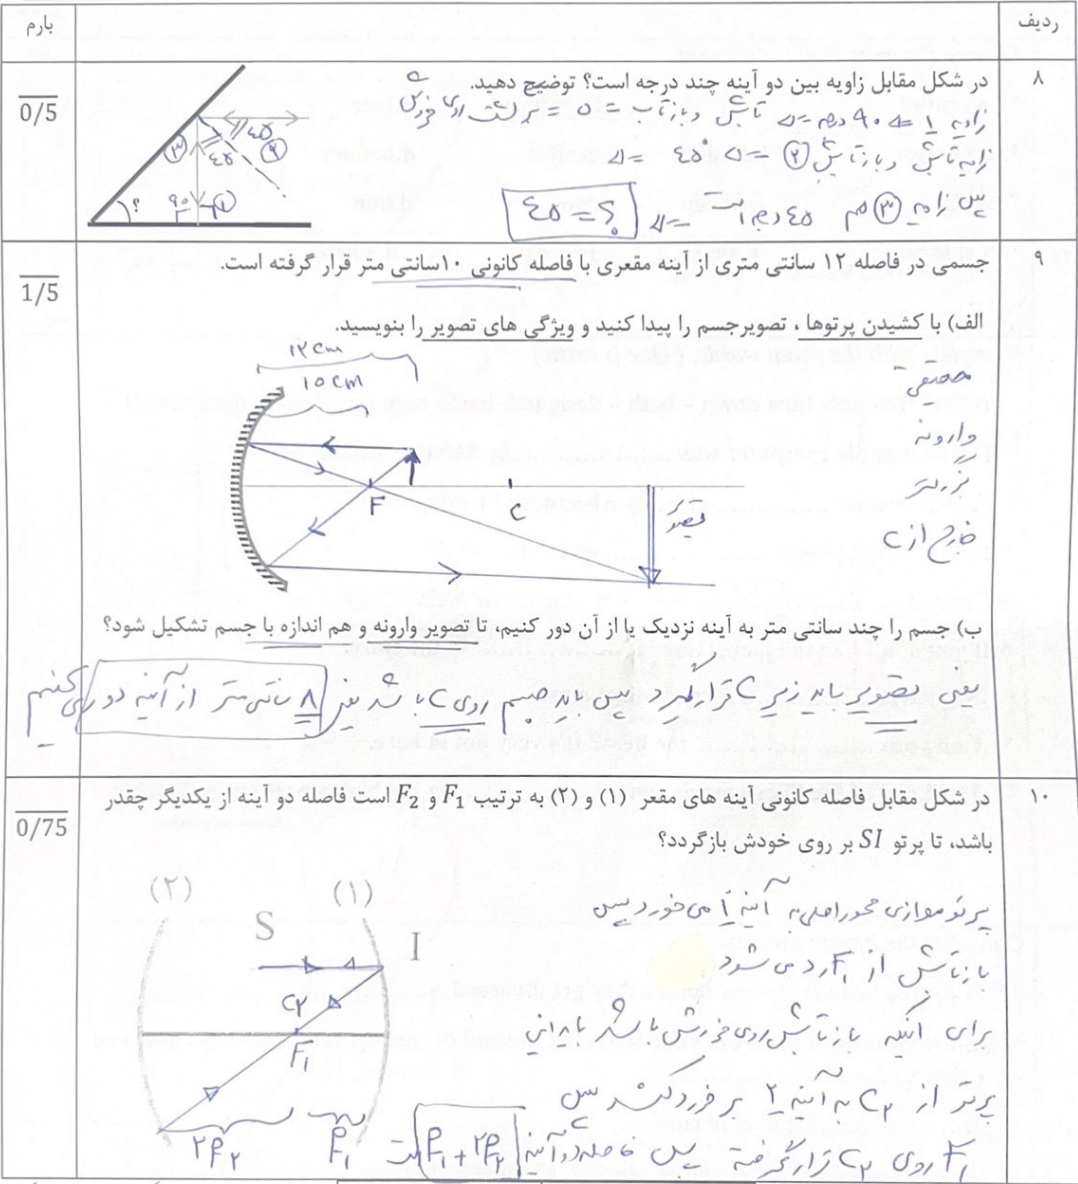 ردیف
بارم
۸
0/5
در شکل مقابل زاویه بین دو آینه چند درجه است؟ توضیح دهید.
زاویه 1 => ۹۰ درجه => تابش و بازتاب = ۰ = برگشت روی خودش
زاویه تابش و بازتابش ② => ۴۵° =>
پس زاویه ③ هم ۴۵ درجه است => ؟ = ۴۵
۳
۴۵
۴۵
۲
۹۰
۱
؟
۹
1/5
جسمی در فاصله ۱۲ سانتی متری از آینه مقعری با فاصله کانونی ۱۰سانتی متر قرار گرفته است.
الف) با کشیدن پرتوها ، تصویرجسم را پیدا کنید و ویژگی های تصویر را بنویسید.
۱۲ cm
10 cm
حقیقی
وارونه
بزرگتر
خارج از C
F
C
تصویر
ب) جسم را چند سانتی متر به آینه نزدیک یا از آن دور کنیم، تا تصویر وارونه و هم اندازه با جسم تشکیل شود؟
یعنی تصویر باید زیر C قرار گیرد پس باید جسم روی C باشد یعنی ۸ سانتی متر از آینه دور می کنیم
۱۰
0/75
در شکل مقابل فاصله کانونی آینه های مقعر (۱) و (۲) به ترتیب F₁ و F₂ است فاصله دو آینه از یکدیگر چقدر
باشد، تا پرتو SI بر روی خودش بازگردد؟
(۲)
(۱)
S
I
C۲
F₁
۲F۲
F₁
پرتو موازی محور اصلی به آینه ۱ می خورد پس
بازتابش از F₁ رد می شود
برای اینکه بازتابش روی خودش باشد باید این
پرتو از C۲ به آینه ۲ برخورد کند پس
F₁ روی C۲ قرار گرفته پس فاصله دو آینه F₁ + ۲F۲ است